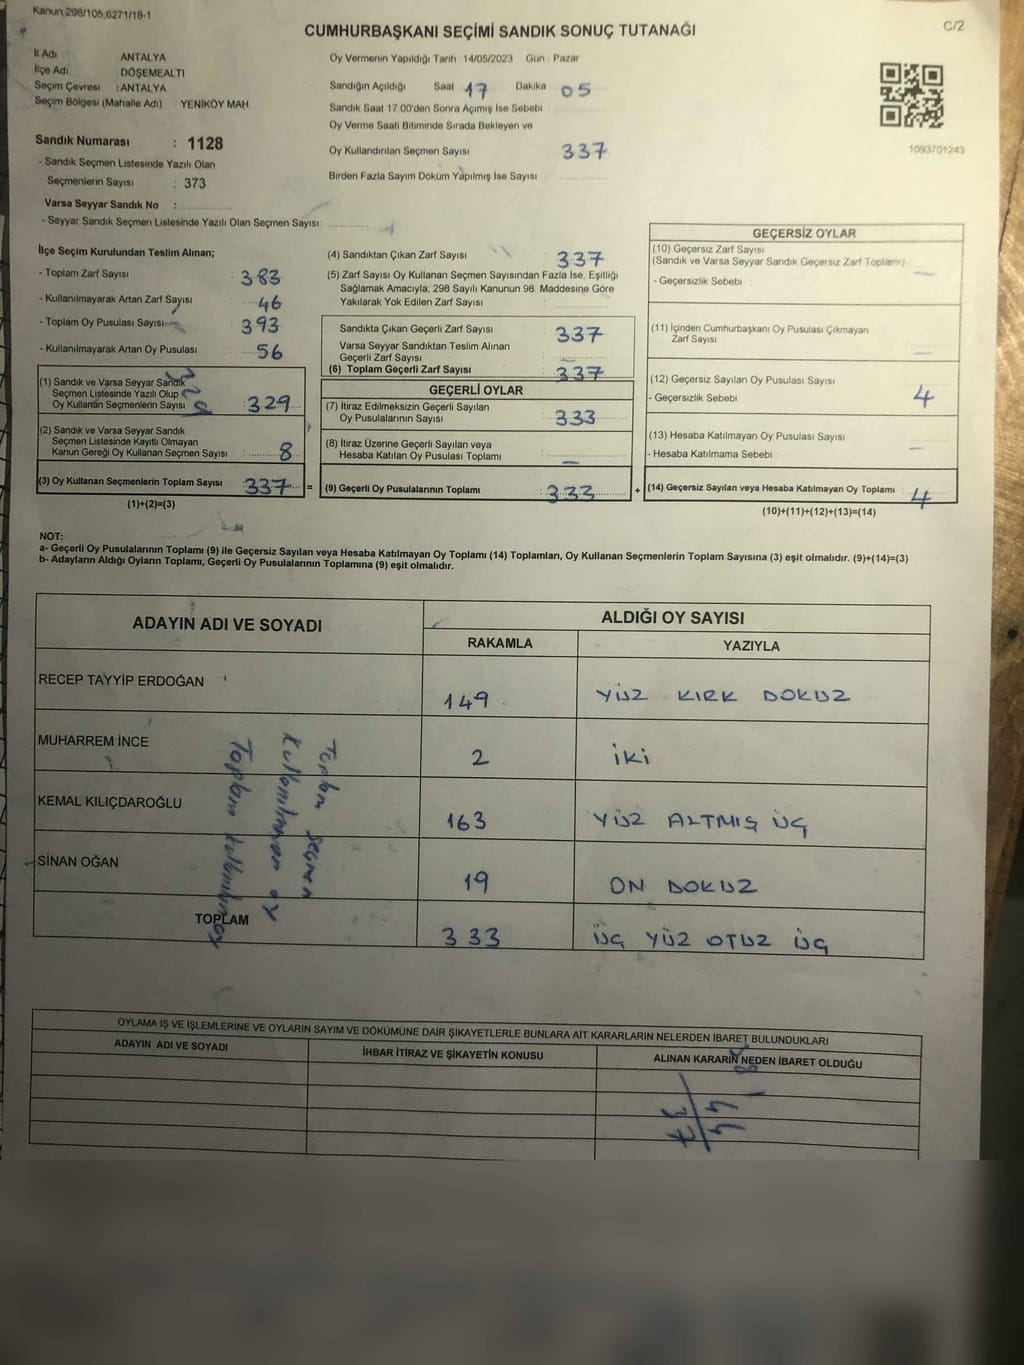 Kanun 298/105,6271/18-1
C/2
CUMHURBAŞKANI SEÇİMİ SANDIK SONUÇ TUTANAĞI
İl Adı ANTALYA
İlçe Adı DÖŞEMEALTI
Seçim Çevresi : ANTALYA
Seçim Bölgesi (Mahalle Adı) YENİKÖY MAH
Sandık Numarası : 1128
- Sandık Seçmen Listesinde Yazılı Olan
Seçmenlerin Sayısı : 373
Varsa Seyyar Sandık No :
- Seyyar Sandık Seçmen Listesinde Yazılı Olan Seçmen Sayısı
Oy Vermenin Yapıldığı Tarih 14/05/2023 Gün : Pazar
Sandığın Açıldığı Saat 17 Dakika 05
Sandık Saat 17.00'den Sonra Açımış İse Sebebi
Oy Verme Saati Bitiminde Sırada Bekleyen ve
Oy Kullandırılan Seçmen Sayısı 337
Birden Fazla Sayım Döküm Yapılmış İse Sayısı
1093701243
İlçe Seçim Kurulundan Teslim Alınan;
- Toplam Zarf Sayısı 383
- Kullanılmayarak Artan Zarf Sayısı 46
- Toplam Oy Pusulası Sayısı 393
- Kullanılmayarak Artan Oy Pusulası 56
(1) Sandık ve Varsa Seyyar Sandık
Seçmen Listesinde Yazılı Olup
Oy Kullanan Seçmenlerin Sayısı : 329
(2) Sandık ve Varsa Seyyar Sandık
Seçmen Listesinde Kayıtlı Olmayan
Kanun Gereği Oy Kullanan Seçmen Sayısı : 8
(3) Oy Kullanan Seçmenlerin Toplam Sayısı : 337 =
(1)+(2)=(3)
(4) Sandıktan Çıkan Zarf Sayısı : 337
(5) Zarf Sayısı Oy Kullanan Seçmen Sayısından Fazla İse, Eşitliği
Sağlamak Amacıyla, 298 Sayılı Kanunun 98. Maddesine Göre
Yakılarak Yok Edilen Zarf Sayısı :
Sandıkta Çıkan Geçerli Zarf Sayısı : 337
Varsa Seyyar Sandıktan Teslim Alınan
Geçerli Zarf Sayısı :
(6) Toplam Geçerli Zarf Sayısı : 337
GEÇERLİ OYLAR
(7) İtiraz Edilmeksizin Geçerli Sayılan
Oy Pusulalarının Sayısı : 333
(8) İtiraz Üzerine Geçerli Sayılan veya
Hesaba Katılan Oy Pusulası Toplamı : —
(9) Geçerli Oy Pusulalarının Toplamı : 333 +
GEÇERSİZ OYLAR
(10) Geçersiz Zarf Sayısı
(Sandık ve Varsa Seyyar Sandık Geçersiz Zarf Toplamı) —
- Geçersizlik Sebebi :
(11) İçinden Cumhurbaşkanı Oy Pusulası Çıkmayan
Zarf Sayısı : —
(12) Geçersiz Sayılan Oy Pusulası Sayısı : 4
- Geçersizlik Sebebi
(13) Hesaba Katılmayan Oy Pusulası Sayısı : —
- Hesaba Katılmama Sebebi :
(14) Geçersiz Sayılan veya Hesaba Katılmayan Oy Toplamı : 4
(10)+(11)+(12)+(13)=(14)
NOT:
a- Geçerli Oy Pusulalarının Toplamı (9) ile Geçersiz Sayılan veya Hesaba Katılmayan Oy Toplamı (14) Toplamları, Oy Kullanan Seçmenlerin Toplam Sayısına (3) eşit olmalıdır. (9)+(14)=(3)
b- Adayların Aldığı Oyların Toplamı, Geçerli Oy Pusulalarının Toplamına (9) eşit olmalıdır.
ADAYIN ADI VE SOYADI
ALDIĞI OY SAYISI
RAKAMLA YAZIYLA
RECEP TAYYİP ERDOĞAN 149 YÜZ KIRK DOKUZ
MUHARREM İNCE 2 İKİ
KEMAL KILIÇDAROĞLU 163 YÜZ ALTMIŞ ÜÇ
SİNAN OĞAN 19 ON DOKUZ
TOPLAM 333 ÜÇ YÜZ OTUZ ÜÇ
Toplam seçmen
Kullanılmayan oy
Toplam kullanılan oy
OYLAMA İŞ VE İŞLEMLERİNE VE OYLARIN SAYIM VE DÖKÜMÜNE DAİR ŞİKAYETLERLE BUNLARA AİT KARARLARIN NELERDEN İBARET BULUNDUKLARI
ADAYIN ADI VE SOYADI İHBAR İTİRAZ VE ŞİKAYETİN KONUSU ALINAN KARARIN NEDEN İBARET OLDUĞU